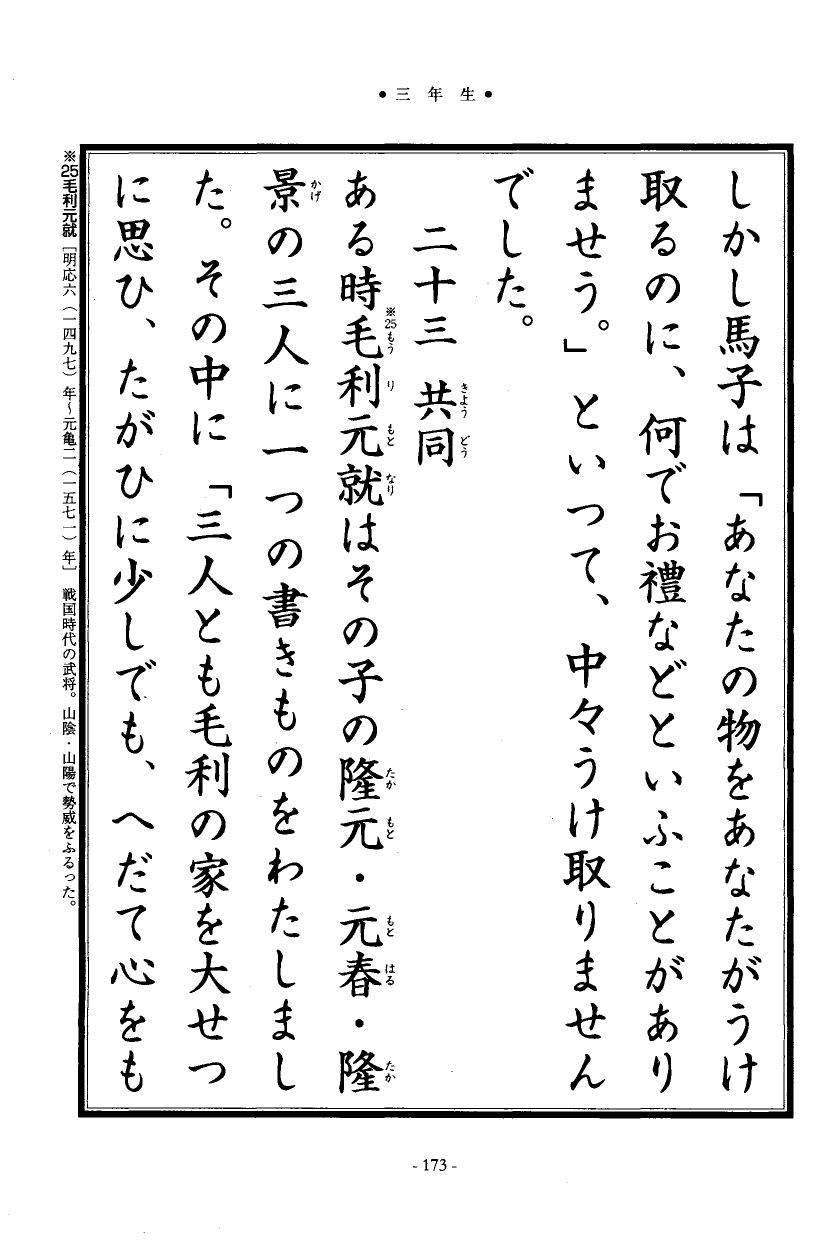 ●三年生●
しかし馬子は「あなたの物をあなたがうけ
取るのに、何でお禮などといふことがあり
ませう。」といつて、中々うけ取りません
でした。
二十三　共同
きようどう
ある時毛利元就はその子の隆元・元春・隆
※25もうりもとなり　たかもと　もとはる　たか
景の三人に一つの書きものをわたしまし
かげ
た。その中に「三人とも毛利の家を大せつ
に思ひ、たがひに少しでも、へだて心をも
※25毛利元就［明応六（一四九七）年～元亀二（一五七一）年］　戦国時代の武将。山陰・山陽で勢威をふるった。
- 173 -